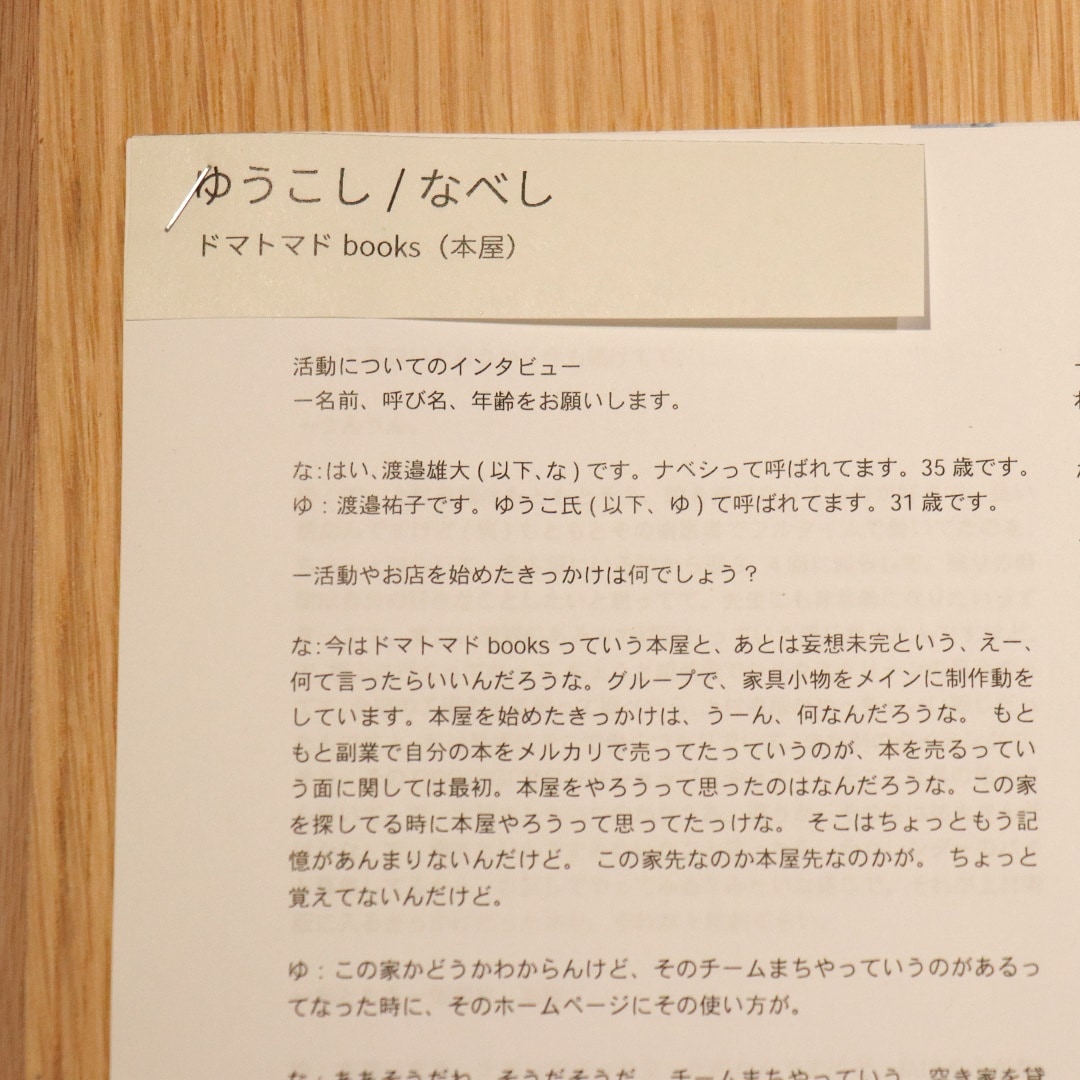 ゆうこし / なべし
ドマトマド books（本屋）
活動についてのインタビュー
ー名前、呼び名、年齢をお願いします。
な：はい、渡邉雄大 ( 以下、な ) です。ナベシって呼ばれてます。35 歳です。
ゆ：渡邉祐子です。ゆうこ氏 ( 以下、ゆ ) て呼ばれてます。31 歳です。
ー活動やお店を始めたきっかけは何でしょう？
な：今はドマトマド books っていう本屋と、あとは妄想未完という、えー、
何て言ったらいいんだろうな。グループで、家具小物をメインに制作動を
しています。本屋を始めたきっかけは、うーん、何なんだろうな。 もと
もと副業で自分の本をメルカリで売ってたっていうのが、本を売るってい
う面に関しては最初。本屋をやろうって思ったのはなんだろうな。この家
を探してる時に本屋やろうって思ってたっけな。 そこはちょっともう記
憶があんまりないんだけど。 この家先なのか本屋先なのかが。 ちょっと
覚えてないんだけど。
ゆ：この家かどうかわからんけど、そのチームまちやっていうのがあるっ
てなった時に、そのホームページにその使い方が。
な：ああそうだね、そうだそうだ。 チームまちやっていう、空き家を貸